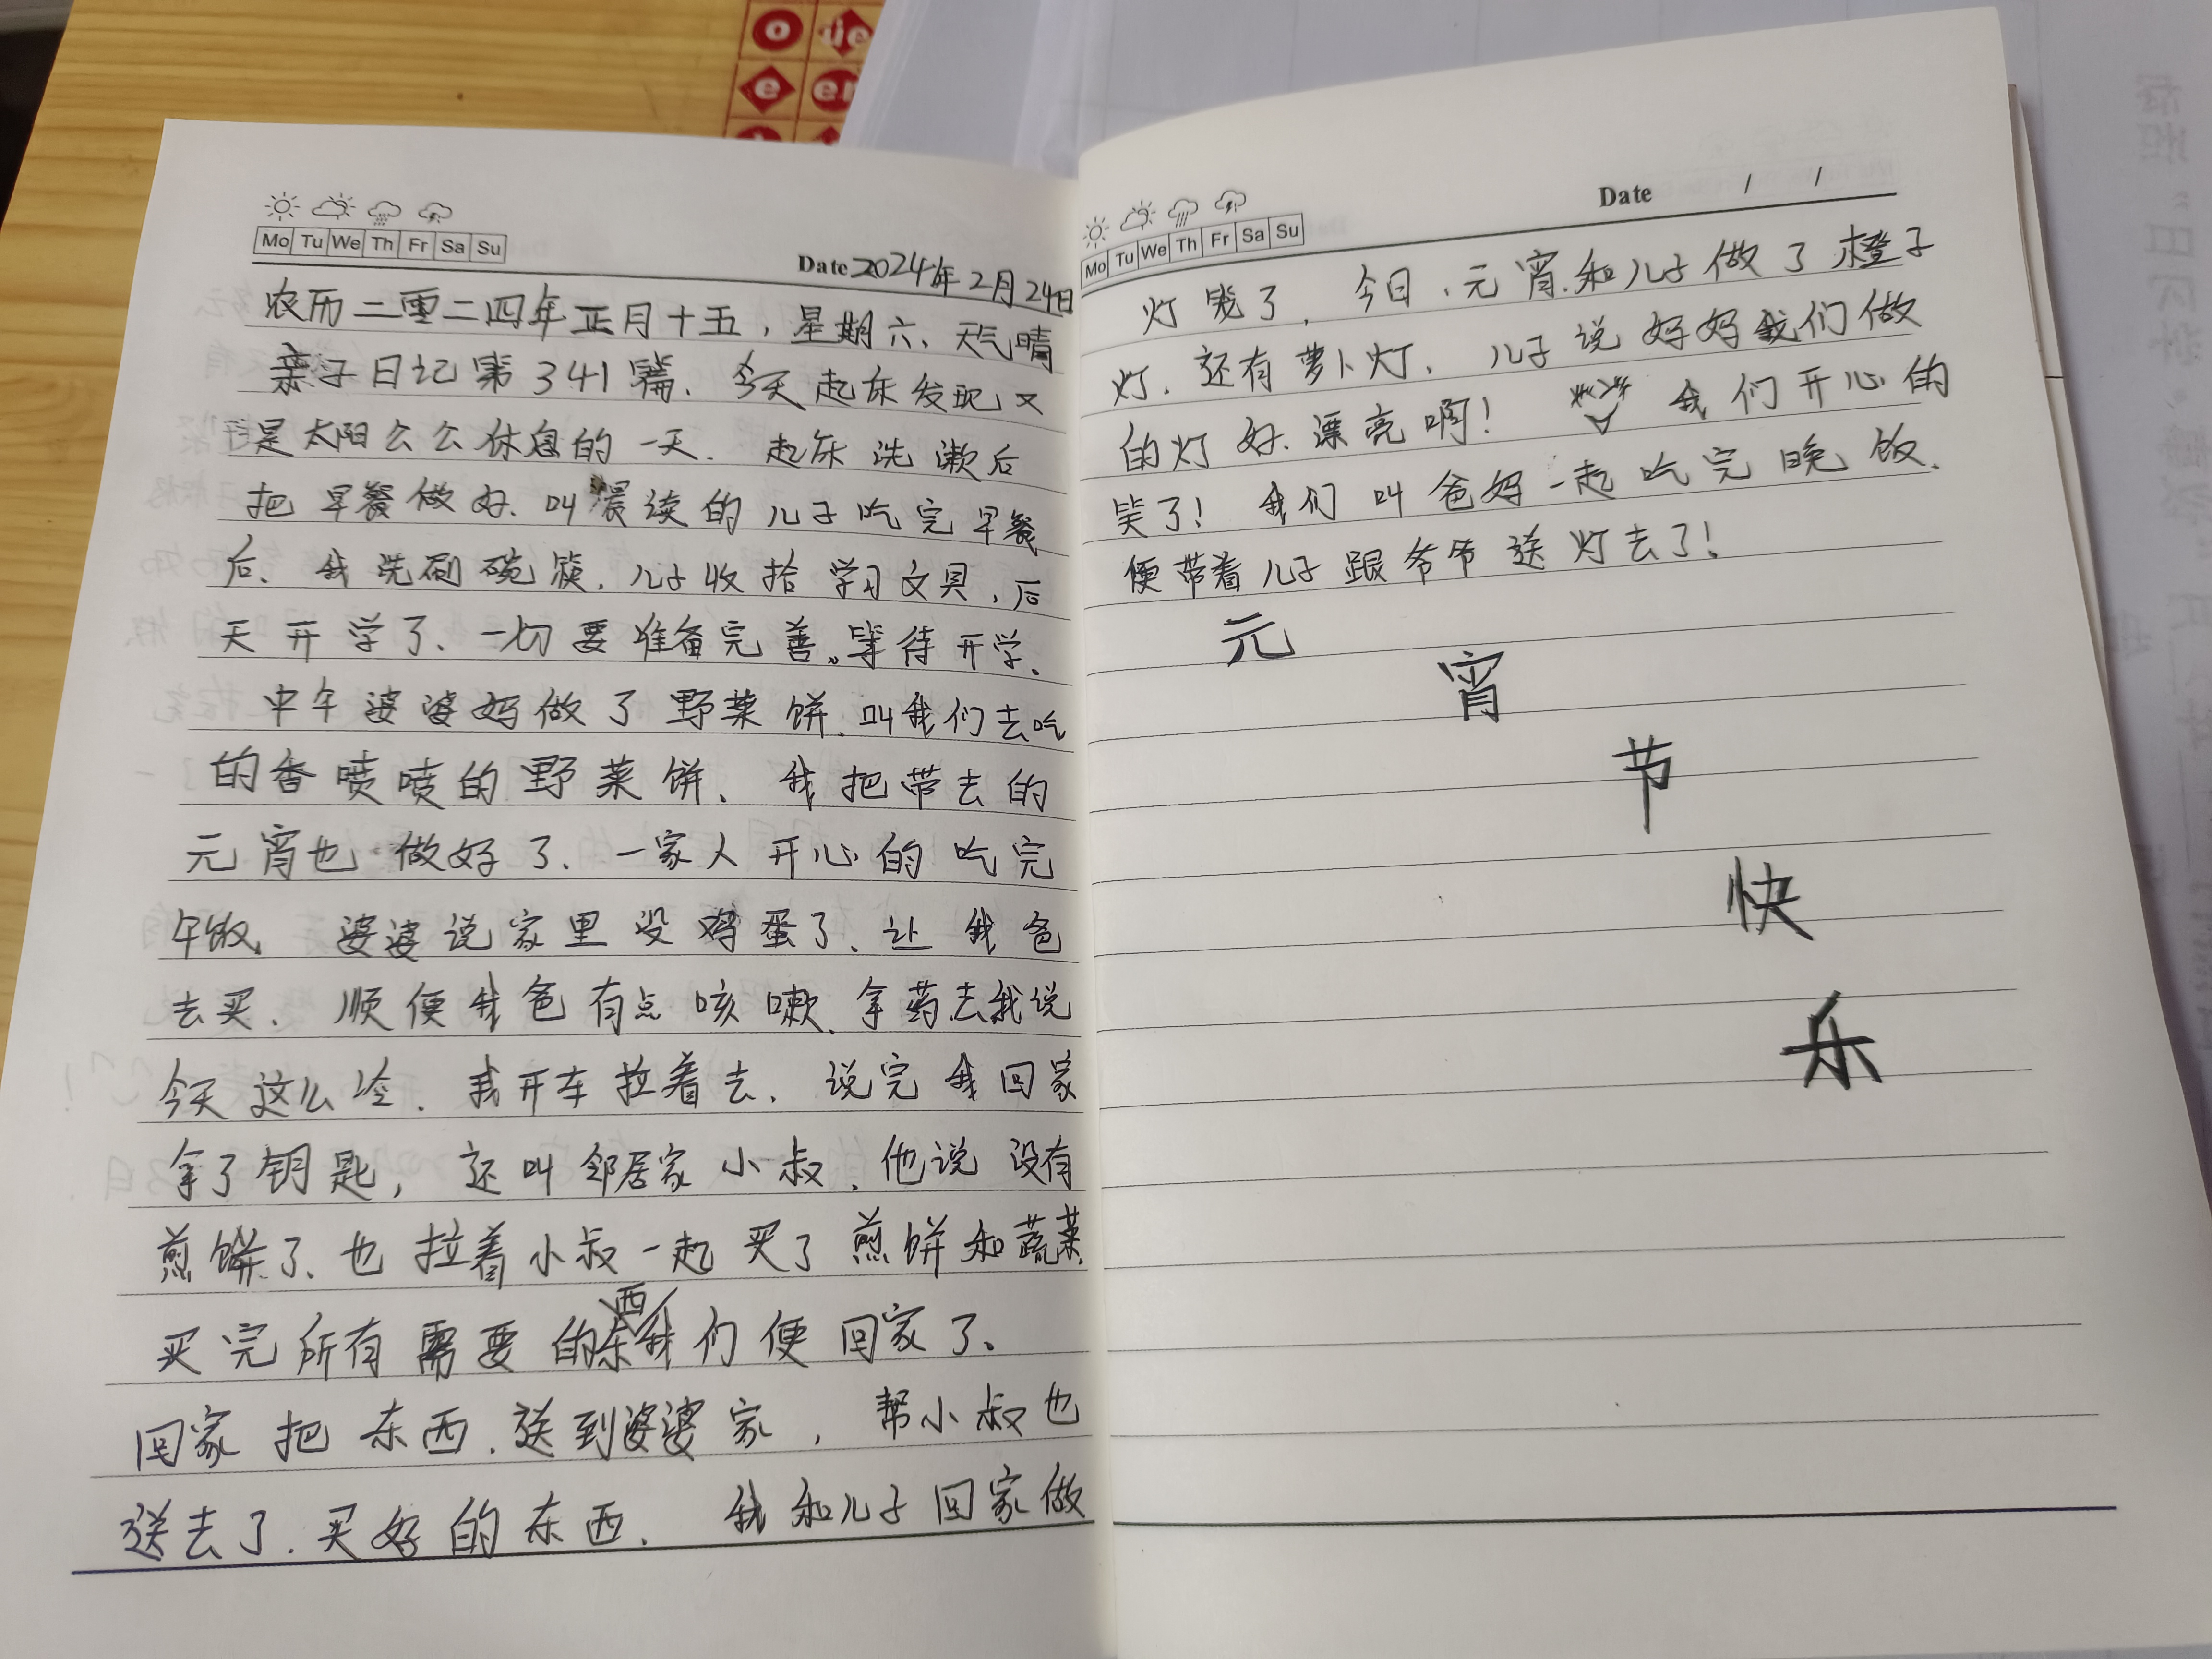 o
e
er
Mo Tu We Th Fr Sa Su
Date 2024年2月24日
农历二零二四年正月十五，星期六、天气晴
亲子日记第341篇. 今天起床发现又
是太阳公公休息的一天. 起床洗漱后
把早餐做好.叫晨读的儿子吃完早餐
后、我洗刷碗筷.儿子收拾学习文具,后
天开学了、一切要准备完善。等待开学.
中午婆婆妈做了野菜饼.叫我们去吃
的香喷喷的野菜饼、我把带去的
元宵也做好了、一家人开心的吃完
午饭、婆婆说家里没鸡蛋了、让我爸
去买、顺便我爸有点咳嗽.拿药去我说
今天这么冷.我开车拉着去.说完我回家
拿了钥匙，还叫邻居家小叔.他说没有
煎饼了、也拉着小叔一起买了煎饼和蔬菜.
买完所有需要的东西我们便回家了、
回家把东西.送到婆婆家，帮小叔也
送去了.买好的东西、我和儿子回家做
Mo Tu We Th Fr Sa Su
Date / /
灯笼了.今日、元宵.和儿子做了橙子
灯.还有萝卜灯.儿子说妈妈我们做
的灯好.漂亮啊！我们开心的
笑了！我们叫爸妈一起吃完晚饭.
便带着儿子跟爷爷送灯去了！
元
宵
节
快
乐